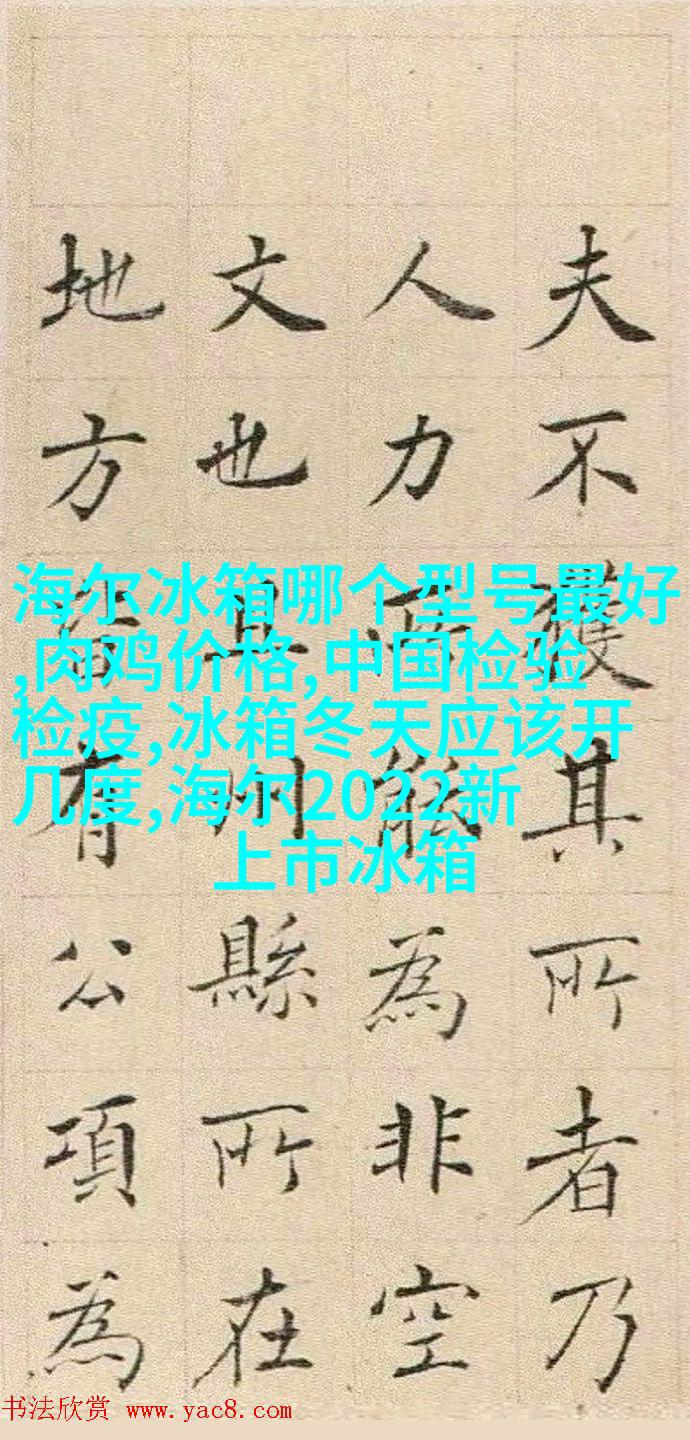 夫不獲其所者乃
人力所能為非空
文也且州縣所在
地方有公項為
海尔冰箱哪个型号最好
,肉鸡价格,中国检验
检疫,冰箱冬天应该开
几度,海尔2022新
上市冰箱
书法欣赏 www.yac8.com